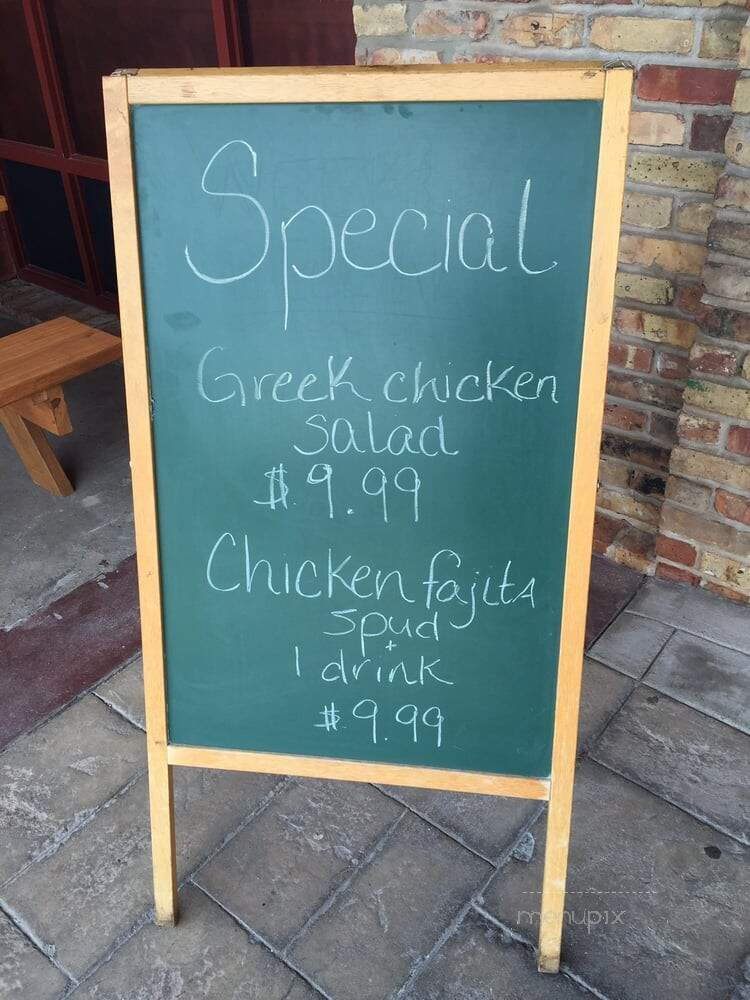 Special
Greek chicken
salad
$9.99
Chicken fajita
spud
+
1 drink
$9.99
menupix